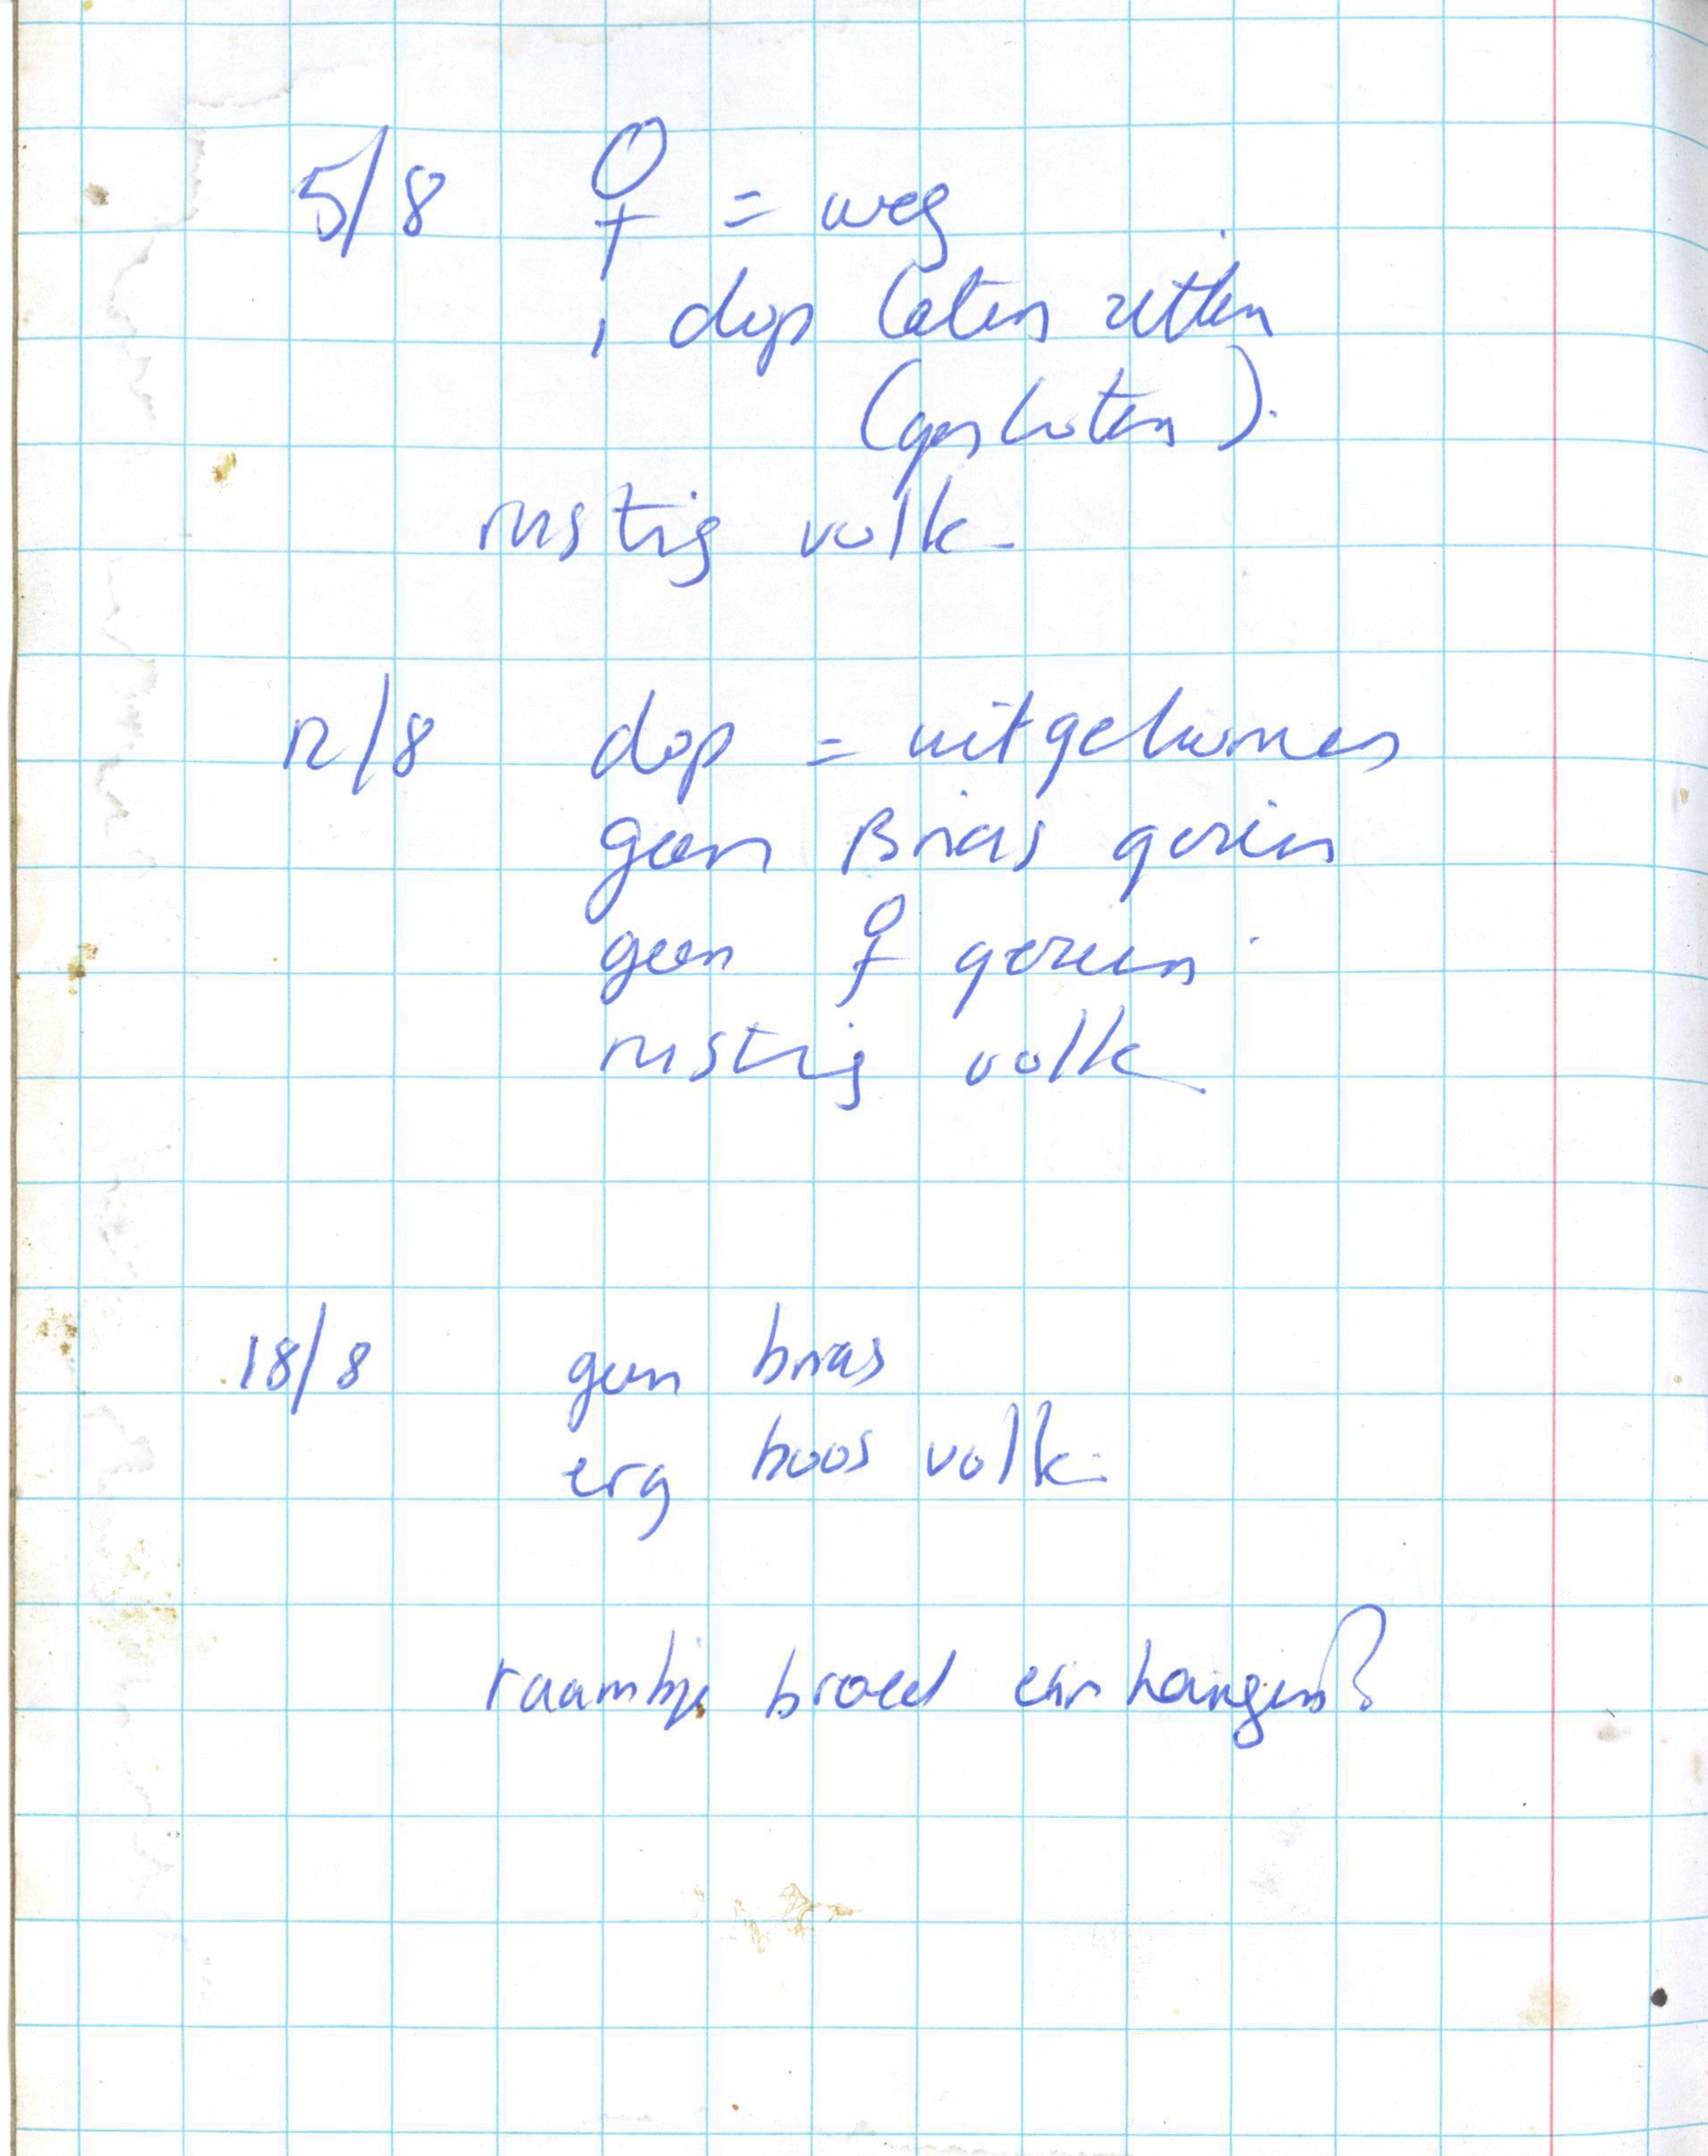 5/8 ♀ = weg
1 dop laten zitten
(gesloten).
rustig volk
12/8 dop = uitgekomen
geen Brias gezien
geen ♀ gezien
rustig volk
18/8 geen brias
erg boos volk.
raampje broed inhangen?